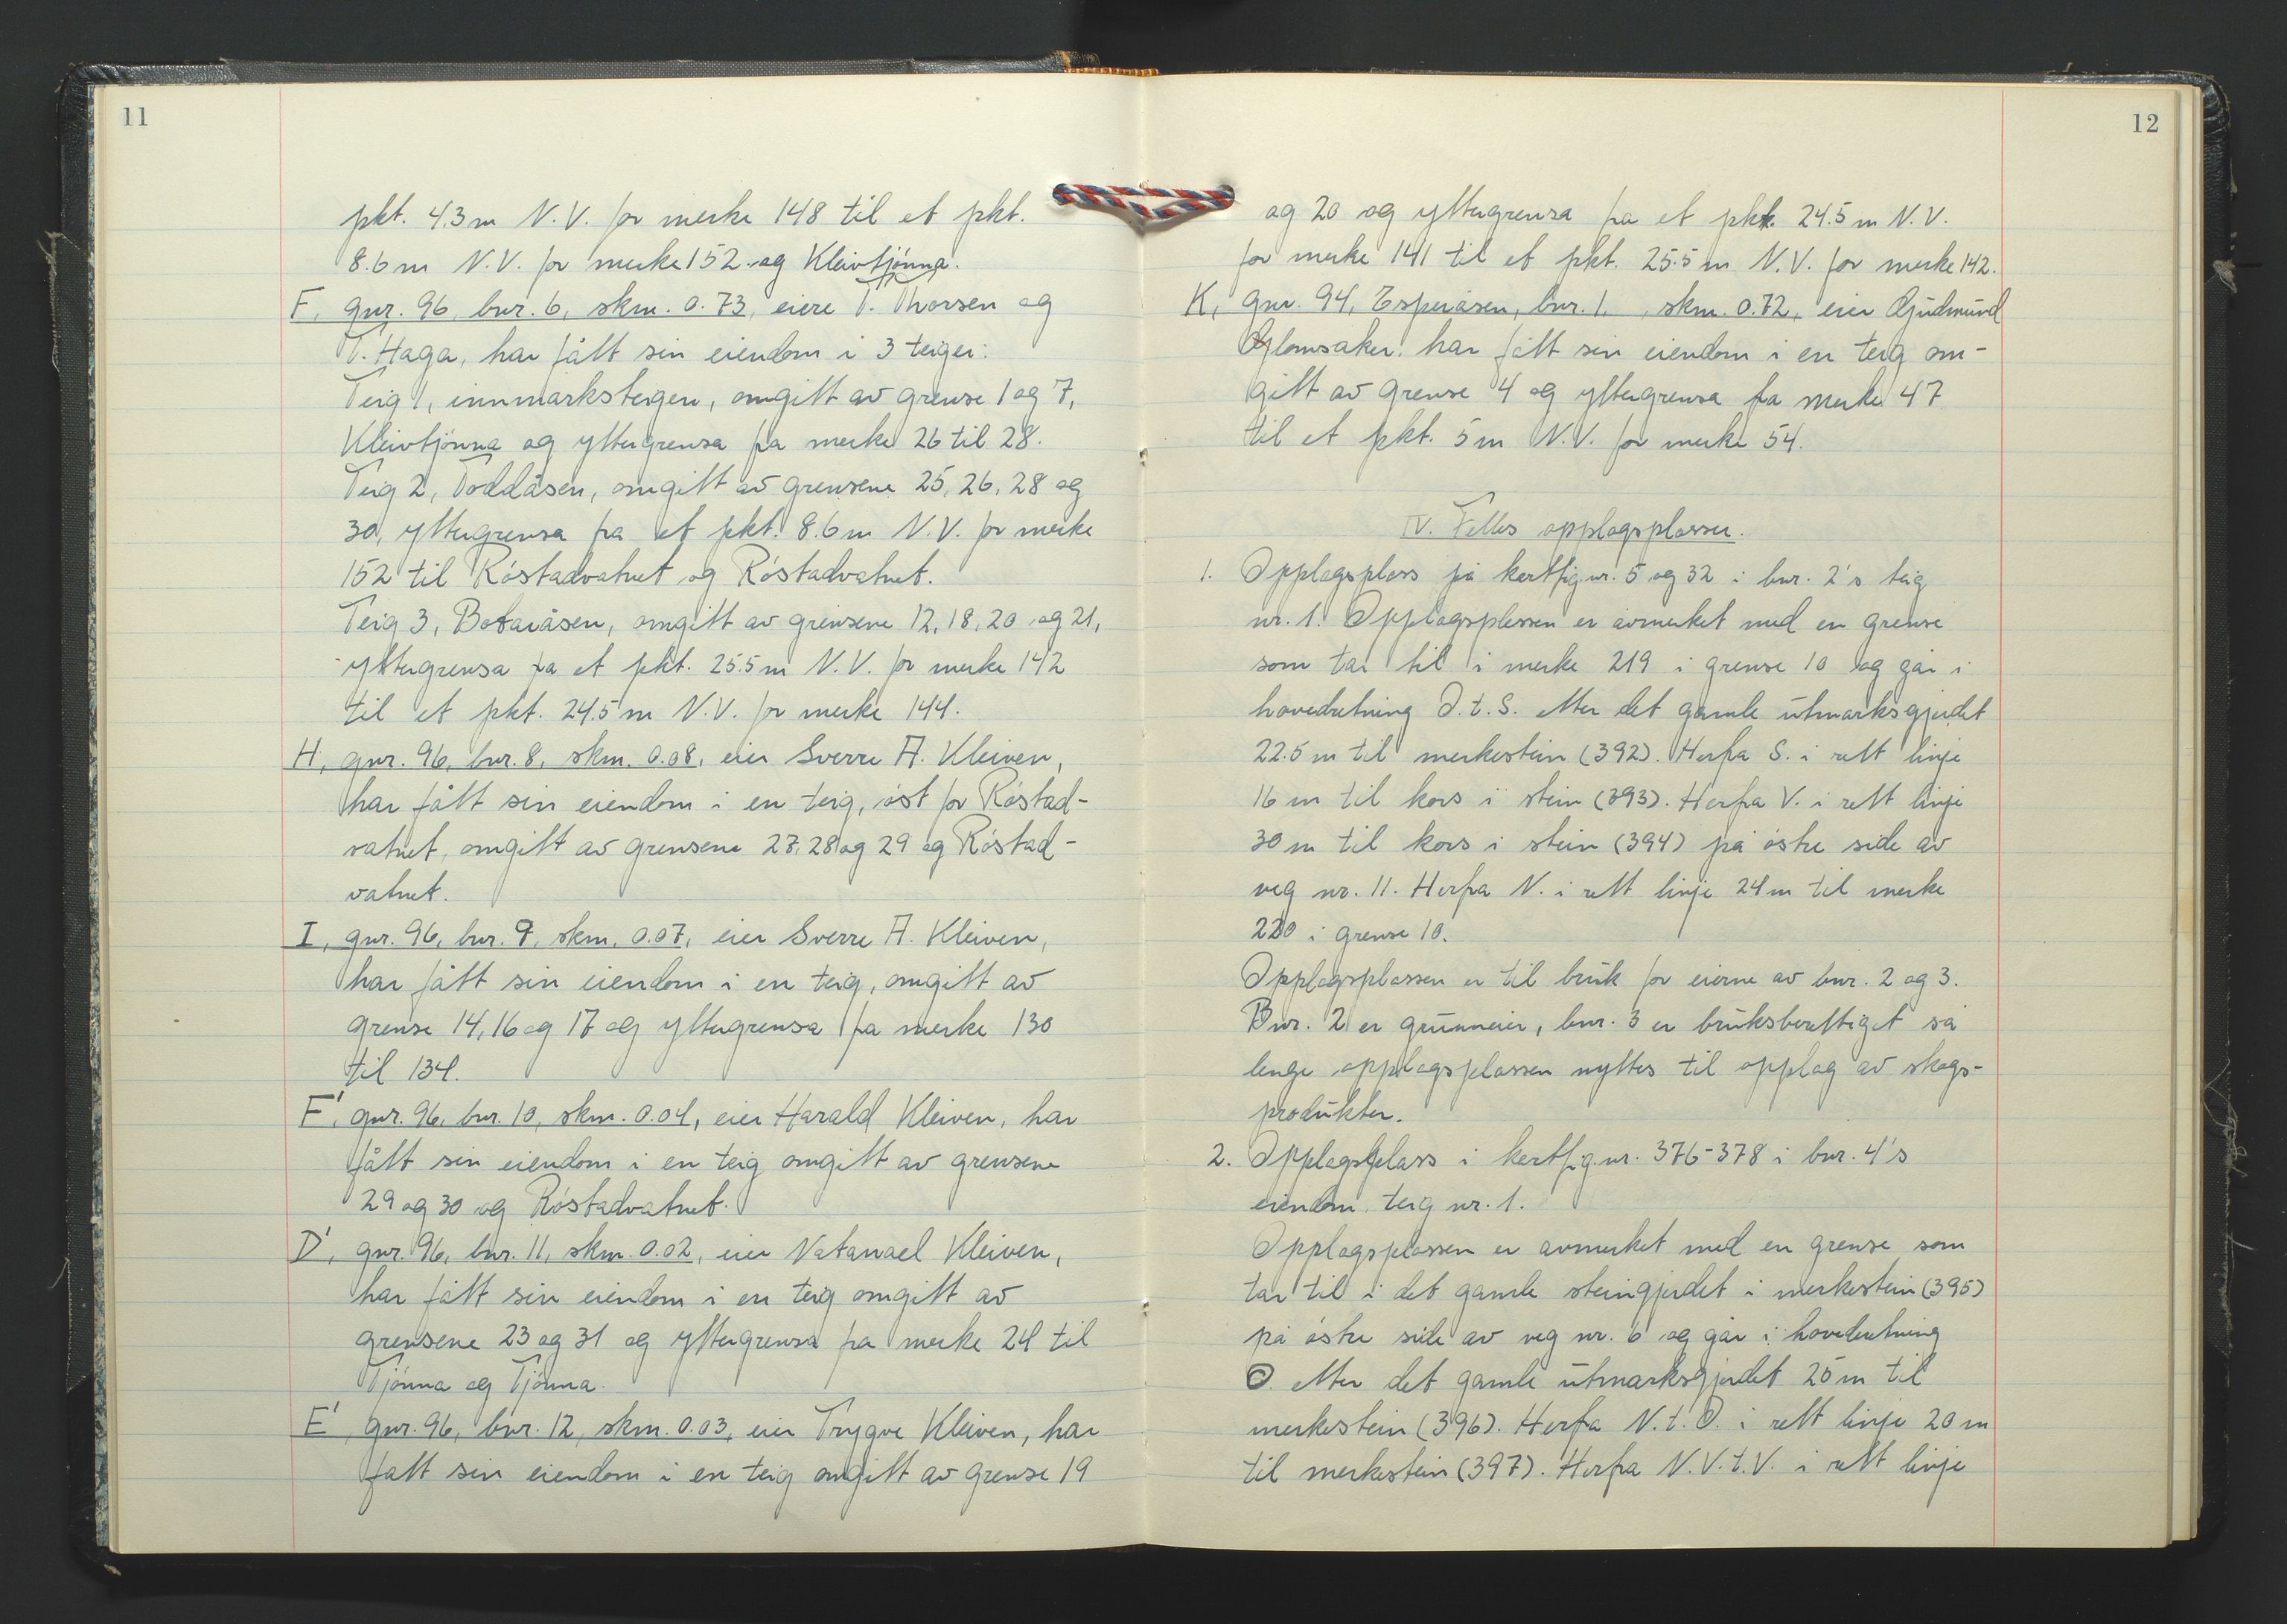 11
pkt. 4.3 m N.V. for merke 148 til et pkt.
8.6 m N.V. for merke 152 og Kleivtjönna.
F, gnr. 96, bnr. 6, skm. 0.73, eiere T. Thorsen og
T. Haga, har fått sin eiendom i 3 teiger:
Teig 1, innmarksteigen, omgitt av grense 1 og 7,
Kleivtjönna og yttergrensa fra merke 26 til 28.
Teig 2, Toddåsen, omgitt av grensene 25, 26, 28 og
30, yttergrensa fra et pkt. 8.6 m N.V. for merke
152 til Röstadvatnet og Röstadvatnet.
Teig 3, Botaråsen, omgitt av grensene 12, 18, 20 og 21,
yttergrensa fra et pkt. 25.5 m N.V. for merke 142
til et pkt. 24.5 m N.V. for merke 144.
H, gnr. 96, bnr. 8, skm. 0.08, eier Sverre A. Kleiven,
har fått sin eiendom i en teig, öst for Röstad-
vatnet, omgitt av grensene 27, 28 og 29 og Röstad-
vatnet.
I, gnr. 96, bnr. 9, skm. 0.07, eier Sverre A. Kleiven,
har fått sin eiendom i en teig, omgitt av
grense 14, 16 og 17 og yttergrensa fra merke 130
til 134.
F', gnr. 96, bnr. 10, skm. 0.04, eier Harald Kleiven, har
fått sin eiendom i en teig omgitt av grensene
29 og 30 og Röstadvatnet.
D', gnr. 96, bnr. 11, skm. 0.02, eier Natanael Kleiven,
har fått sin eiendom i en teig omgitt av
grensene 23 og 31 og yttergrensa fra merke 24 til
Tjönna og Tjönna.
E' gnr. 96, bnr. 12, skm. 0.03, eier Trygve Kleiven, har
fått sin eiendom i en teig omgitt av grense 19
12
og 20 og yttergrensa fra et pkt. 24.5 m N.V.
for merke 141 til et pkt. 25.5 m N.V. for merke 142.
K, gnr. 94, Esperåsen, bnr. 1, skm. 0.72, eier Gudmund
Glomsaker, har fått sin eiendom i en teig om-
gitt av grense 4 og yttergrensa fra merke 47
til et pkt. 5 m N.V. for merke 54.
IV. Felles opplagsplasser.
1. Opplagsplass på kartfig.nr. 5 og 32 i bnr. 2's teig
nr. 1. Opplagsplassen er avmerket med en grense
som tar til i merke 219 i grense 10 og går i
hovedretning Ö.t.S. etter det gamle utmarksgjerdet
22.5 m til merkestein (392). Herfra S. i rett linje
16 m til kors i stein (393). Herfra V. i rett linje
30 m til kors i stein (394) på östre side av
veg nr. 11. Herfra N. i rett linje 24 m til merke
220 i grense 10.
Opplagsplassen er til bruk for eierne av bnr. 2 og 3.
Bnr. 2 er grunneier, bnr. 3 er bruksberettiget så
lenge opplagsplassen nyttes til opplag av skogs-
produkter.
2. Opplagsplass i kartfig.nr. 376-378 i bnr. 4's
eiendom, teig nr. 1.
Opplagsplassen er avmerket med en grense som
tar til i det gamle steingjerdet i merkestein (395)
på östre side av veg nr. 6 og går i hovedretning
Ö. etter det gamle utmarksgjerdet 25 m til
merkestein (396). Herfra N.t.Ö. i rett linje 20 m
til merkestein (397). Herfra N.V.t.V. i rett linje